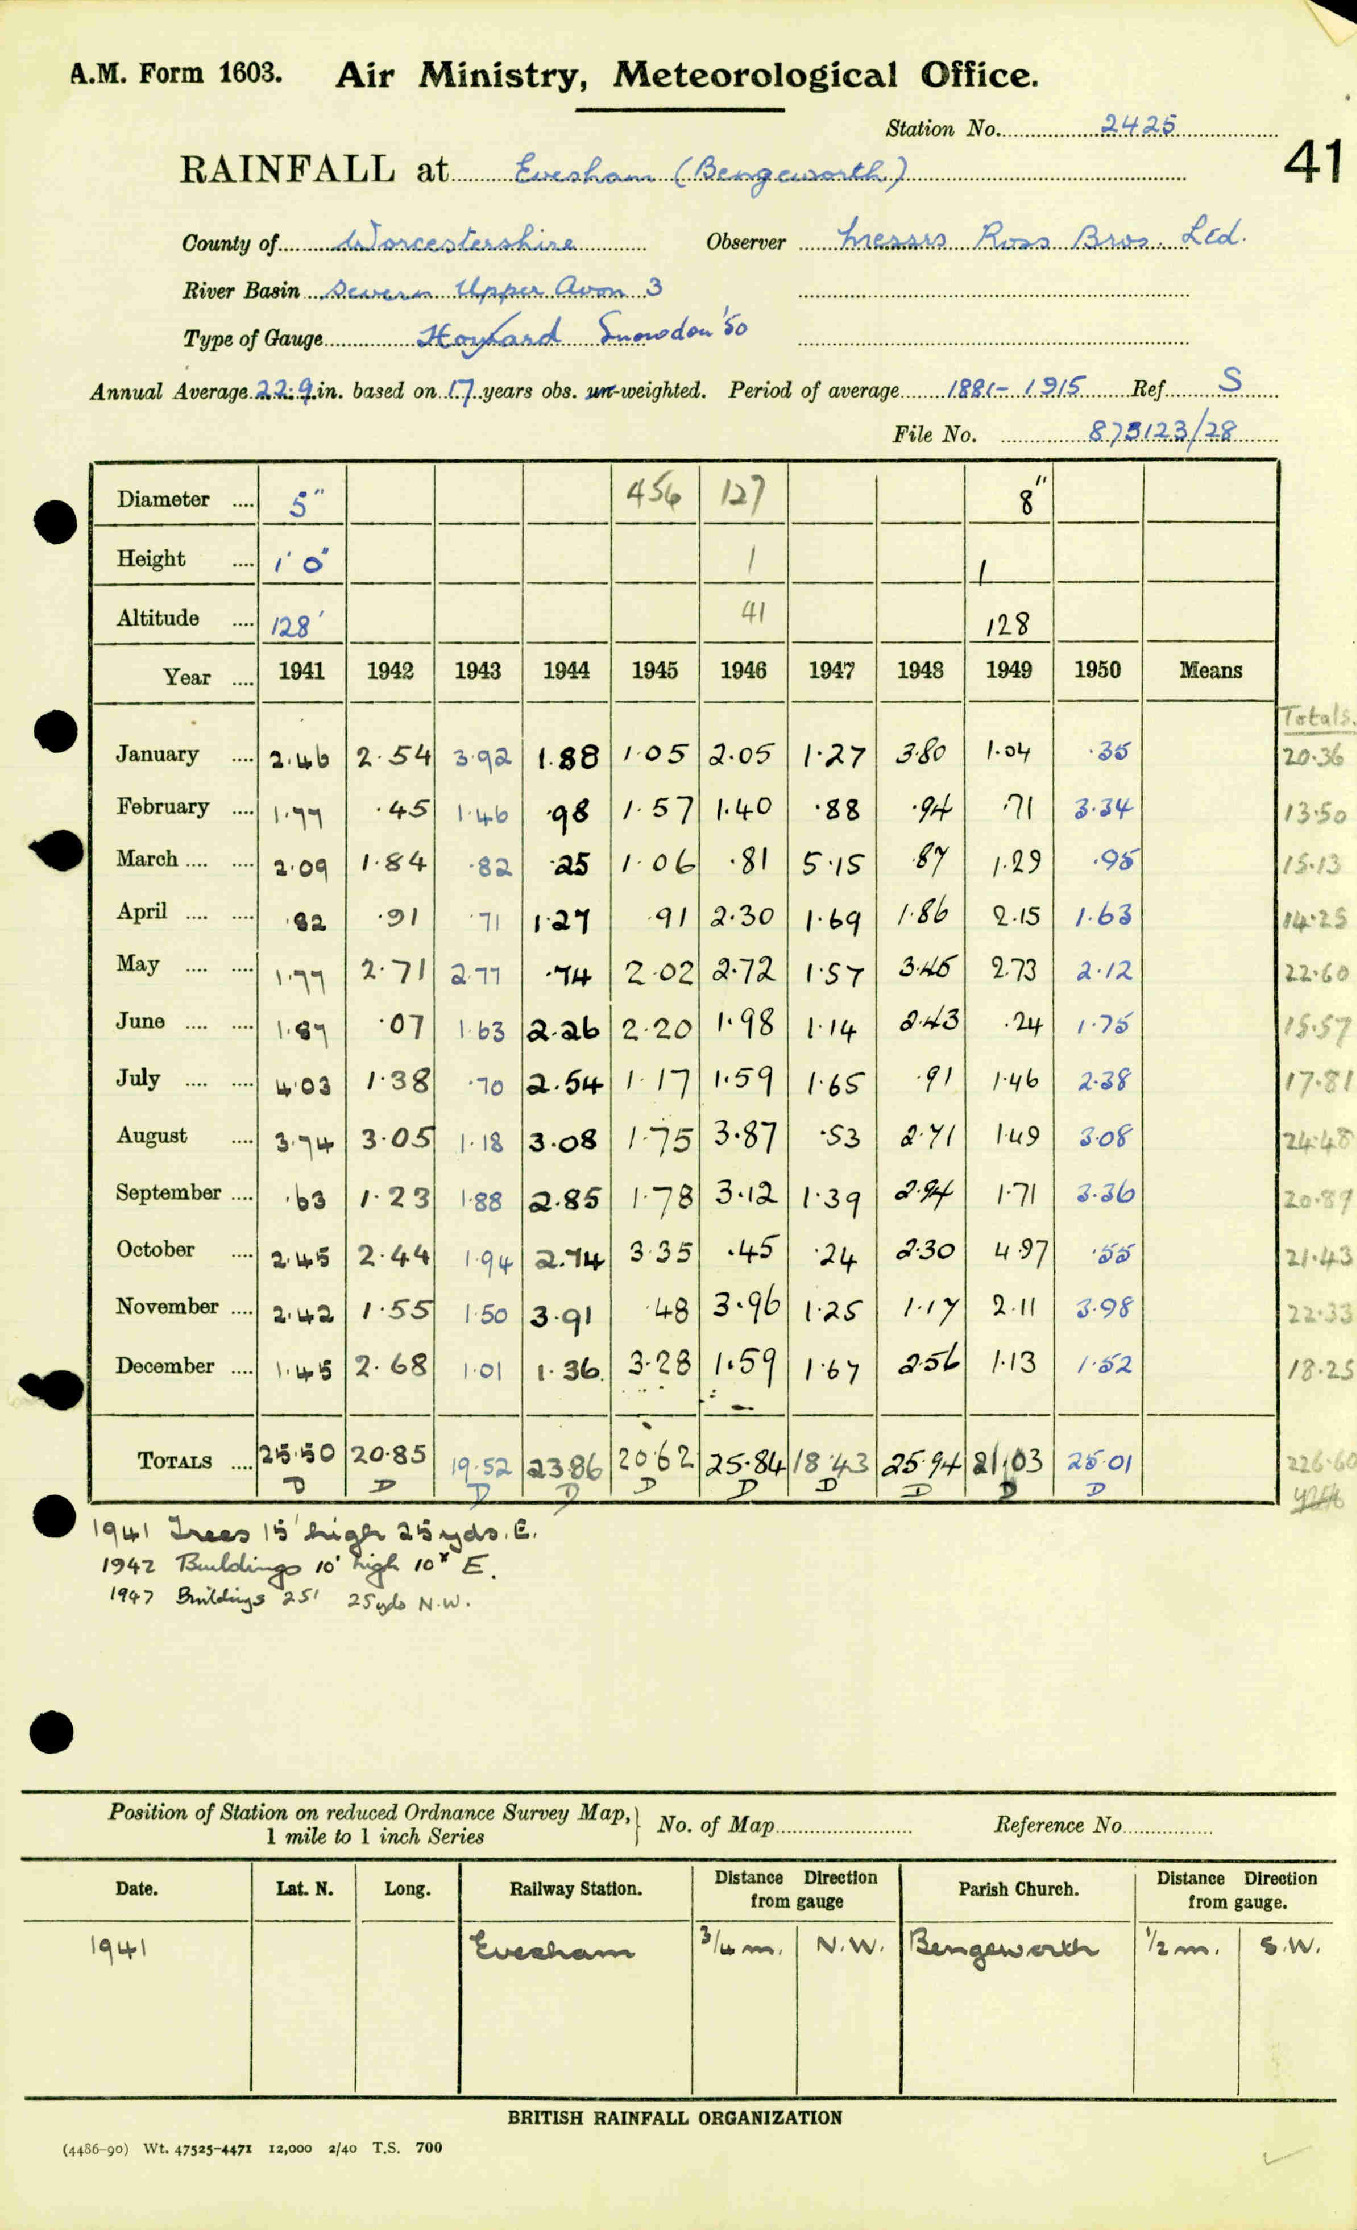 A.M. Form 1603. Air Ministry, Meteorological Office.
Station No. 2425
41
RAINFALL at Evesham (Bengeworth)
County of Worcestershire Observer Messrs Ross Bros. Ltd.
River Basin Severn Upper Avon 3
Type of Gauge Snowdon '50
Annual Average 22.9 in. based on 17 years obs. un-weighted. Period of average 1881-1915 Ref. S
File No. 873123/28
Diameter .... 5" 456 127 8"
Height .... 1' 0" 1 1
Altitude .... 128' 41 128
Year .... 1941 1942 1943 1944 1945 1946 1947 1948 1949 1950 Means
Totals.
January .... 2.46 2.54 3.92 1.88 1.05 2.05 1.27 3.80 1.04 .35 20.36
February .... 1.77 .45 1.46 .98 1.57 1.40 .88 .94 .71 3.34 13.50
March .... .... 2.09 1.84 .82 .25 1.06 .81 5.15 .87 1.29 .95 15.13
April .... .... .82 .91 .71 1.27 .91 2.30 1.69 1.86 2.15 1.63 14.25
May .... .... 1.77 2.71 2.77 .74 2.02 2.72 1.57 3.45 2.73 2.12 22.60
June .... .... 1.87 .07 1.63 2.26 2.20 1.98 1.14 2.43 .24 1.75 15.57
July .... .... 4.03 1.38 .70 2.54 1.17 1.59 1.65 .91 1.46 2.38 17.81
August .... 3.74 3.05 1.18 3.08 1.75 3.87 .53 2.71 1.49 3.08 24.48
September .... .63 1.23 1.88 2.85 1.78 3.12 1.39 2.94 1.71 3.36 20.89
October .... 2.45 2.44 1.94 2.74 3.35 .45 .24 2.30 4.97 .55 21.43
November .... 2.42 1.55 1.50 3.91 .48 3.96 1.25 1.17 2.11 3.98 22.33
December .... 1.45 2.68 1.01 1.36 3.28 1.59 1.67 2.56 1.13 1.52 18.25
TOTALS .... 25.50 20.85 19.52 23.86 20.62 25.84 18.43 25.94 21.03 25.01 226.60
D D D D D D D D D D
1941 Trees 15' high 25 yds. E.
1942 Buildings 10' high 10x E.
1947 Buildings 25' 25yds N.W.
Position of Station on reduced Ordnance Survey Map, 1 mile to 1 inch Series } No. of Map Reference No.
Date. Lat. N. Long. Railway Station. Distance Direction from gauge Parish Church. Distance Direction from gauge.
1941 Evesham 3/4 m. N.W. Bengeworth 1/2 m. S.W.
BRITISH RAINFALL ORGANIZATION
(4486-90) Wt. 47525-4471 12,000 2/40 T.S. 700